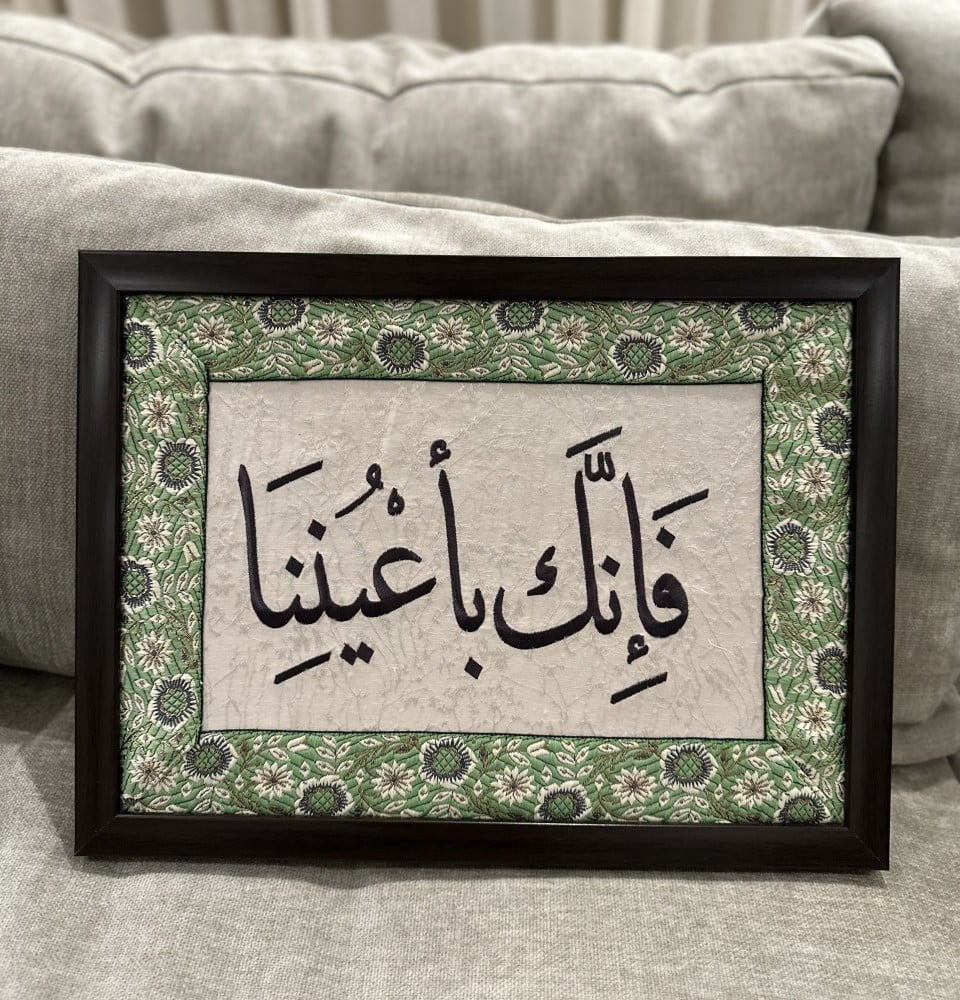 فَإِنَّكَ بأَعْيُنِنَا